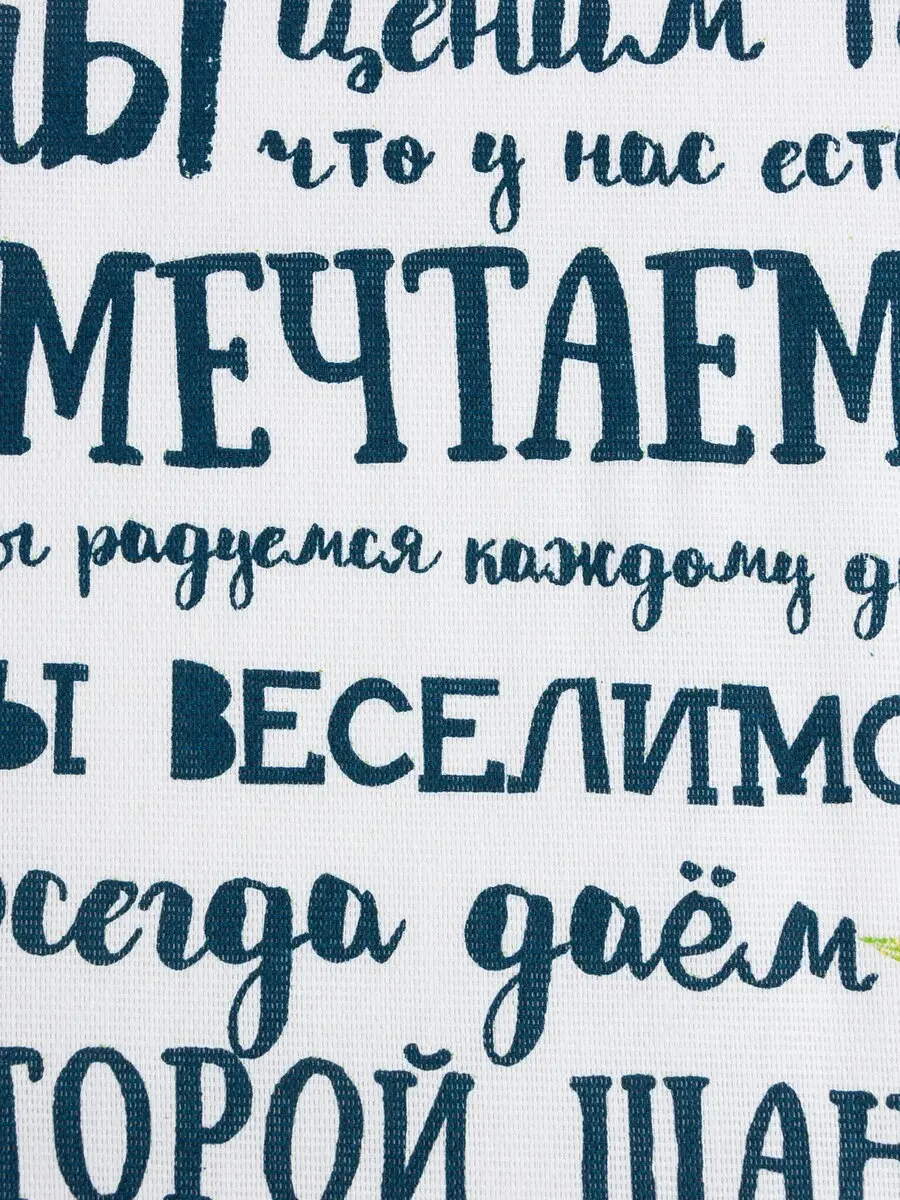 мы ценим
что у нас есть
МЕЧТАЕМ
мы радуемся каждому
МЫ ВЕСЕЛИМСЯ
всегда даём
ВТОРОЙ ШАНС